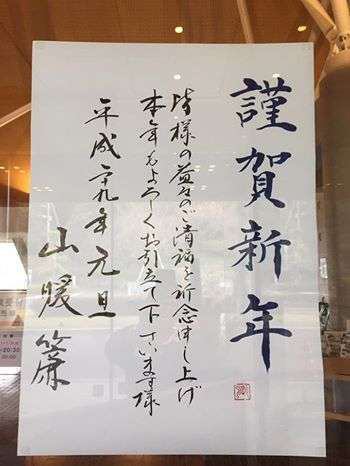 謹賀新年
皆様の益々のご清福を祈念申し上げ
本年もよろしくお引立て下さいます様
平成廿九年元旦
山暖簾
-20:30